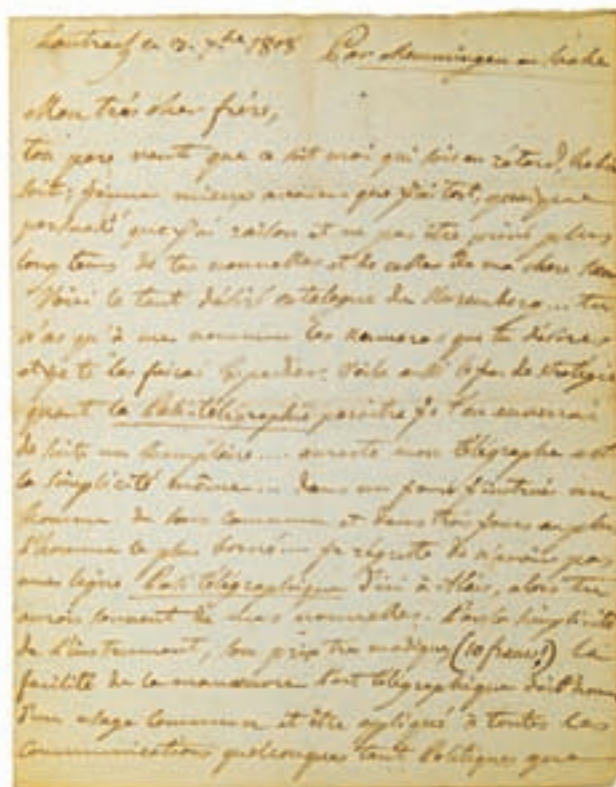 1808 Par Memmingen en
Mon très cher frère,
ton père veut que ce soit moi qui sois en retard,
soit; j'aime mieux avouer que j'ai tort, quoique
persuadé que j'ai raison et ne pas être privé plus
long tems de tes nouvelles et de celles de ma chere
Voici le tant désiré catalogue de tu
n'as qu'à me nommer les numeros que tu désires
et je te les ferai
quant la paroitra je t'en enverrai
de suite un exemplaire... au reste mon télégraphe est
la simplicité même... dans un jour j'instruis un
homme de sens commun et dans trois jours au plus
l'homme le plus borné. je regrette de n'avoir pas
une ligne télégraphique d'ici à alors tu
aurois souvent de mes nouvelles. la simplicité
de l'instrument, son prix très modique (10 francs!) la
facilité de la manoeuvre l'art télégraphique doit
d'un usage commun et être appliqué à toutes les
communications quelconques tant politiques que